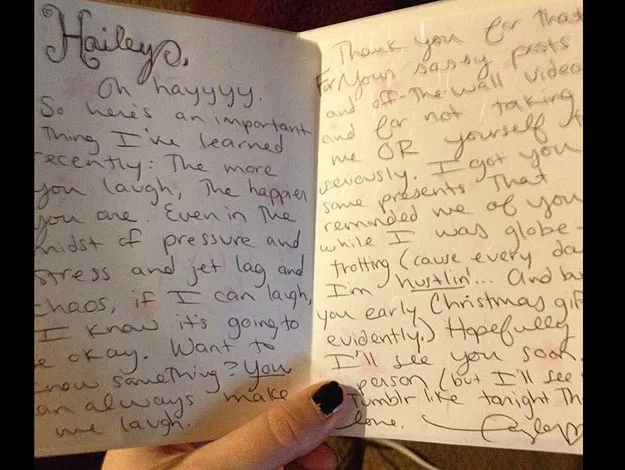 Hailey,
Oh hayyyy.
So here's an important
thing I've learned
ecently: The more
you laugh, The happier
you are. Even in The
midst of pressure and
stress and jet lag and
chaos, if I can laugh,
I know it's going to
e okay. Want to
now something? You
an always make
me laugh.
Thank you for that
For your sassy posts
and off-the-wall video
and for not taking
me OR yourself t
seriously. I got you
some presents That
reminded me of you
while I was globe-
trotting (cause every da
I'm hustlin'... And bu
you early Christmas gif
evidently.) Hopefully
I'll see you soon.
person (but I'll see
Tumblr like tonight Th
lone.